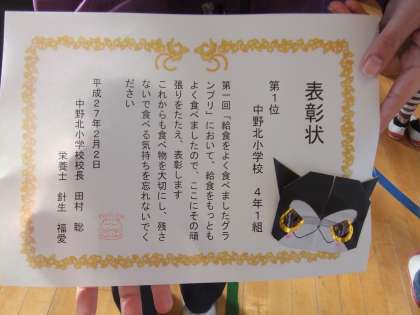 表彰状
第1位
中野北小学校　4年1組
第一回『給食をよく食べましたグラ
ンプリ』において、給食をもっとも
よく食べましたので、ここにその頑
張りをたたえ、表彰します
これからも食べ物を大切にし、残さ
ないで食べる気持ちを忘れないでく
ださい
平成27年2月2日
中野北小学校校長　田村　聡
栄養士　針生　福愛